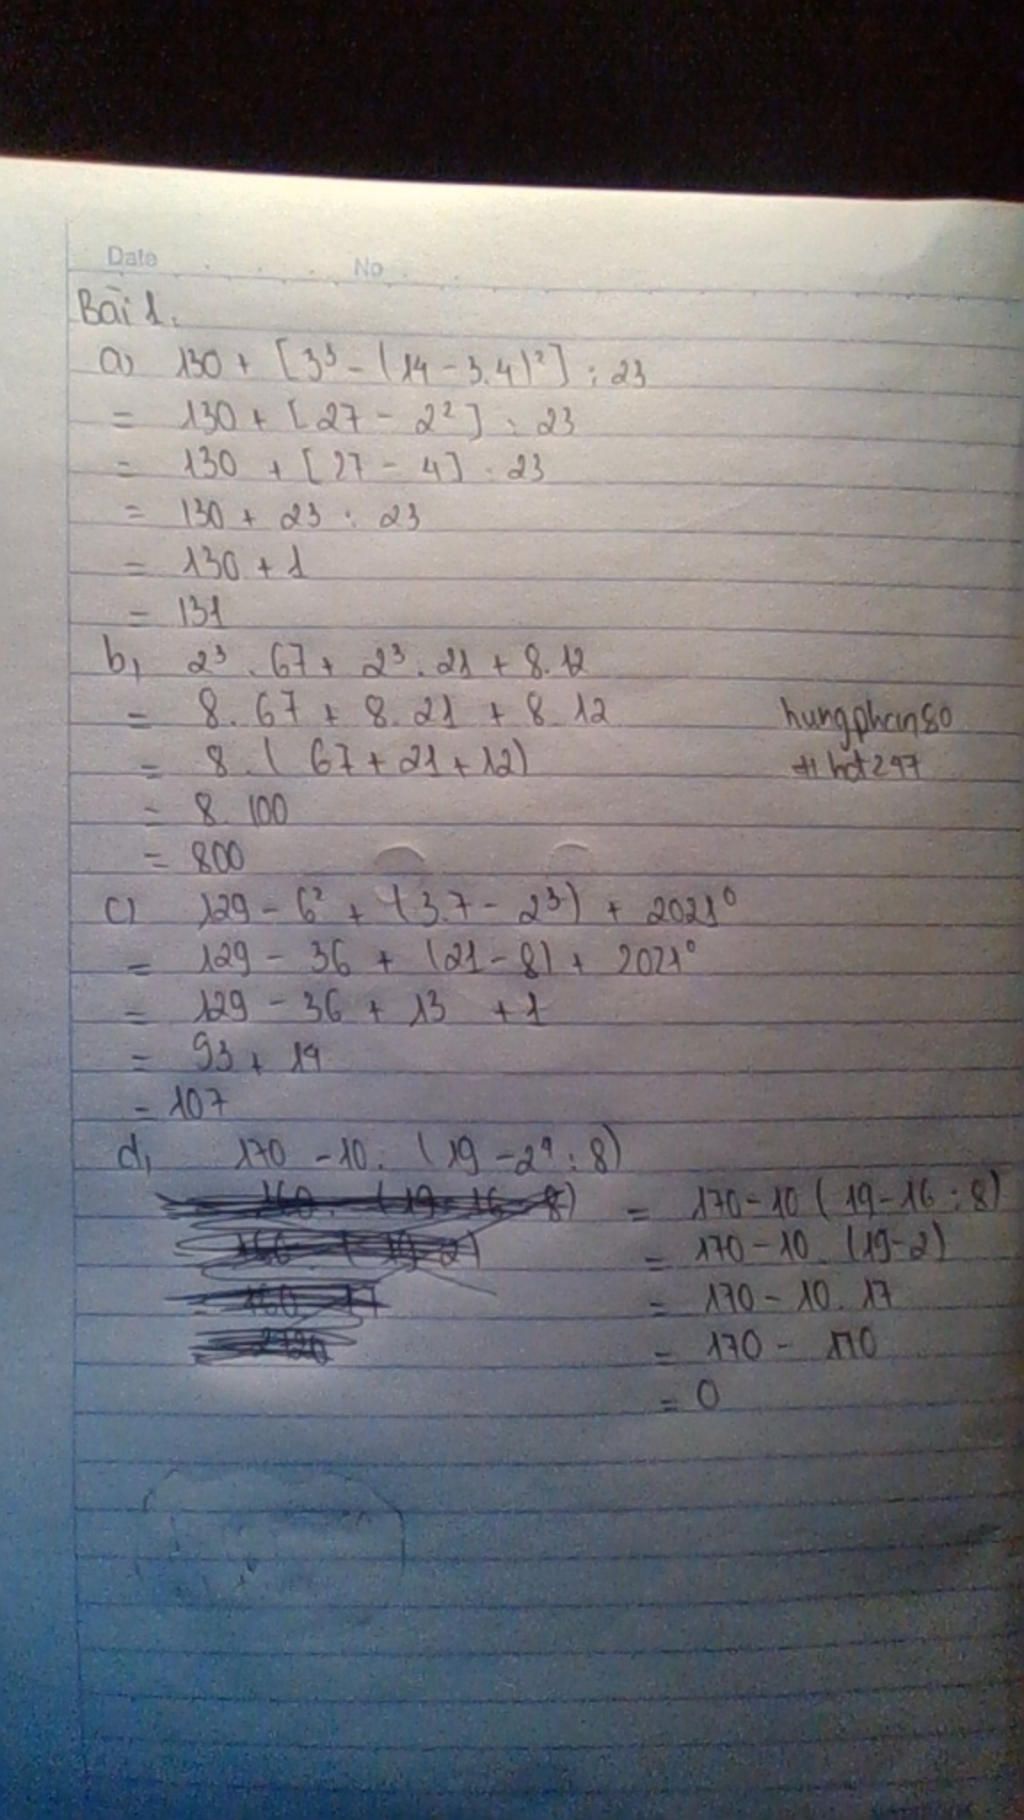 Date No
Bài 1.
a) 130 + [3³ - (14 - 3.4)²] : 23
= 130 + [27 - 2²] : 23
= 130 + [27 - 4] : 23
= 130 + 23 : 23
= 130 + 1
= 131
b) 2³ . 67 + 2³ . 21 + 8.12
= 8. 67 + 8. 21 + 8. 12
hungphan80
= 8. ( 67 + 21 + 12)
= 8. 100
= 800
c) 129 - 6² + (3.7 - 2³) + 2021⁰
= 129 - 36 + (21 - 8) + 2021⁰
= 129 - 36 + 13 + 1
= 93 + 14
= 107
d) 170 - 10. (19 - 2⁴ : 8)
= 170 - 10 (19 - 16 : 8)
= 170 - 10 . (19 - 2)
= 170 - 10. 17
= 170 - 170
= 0